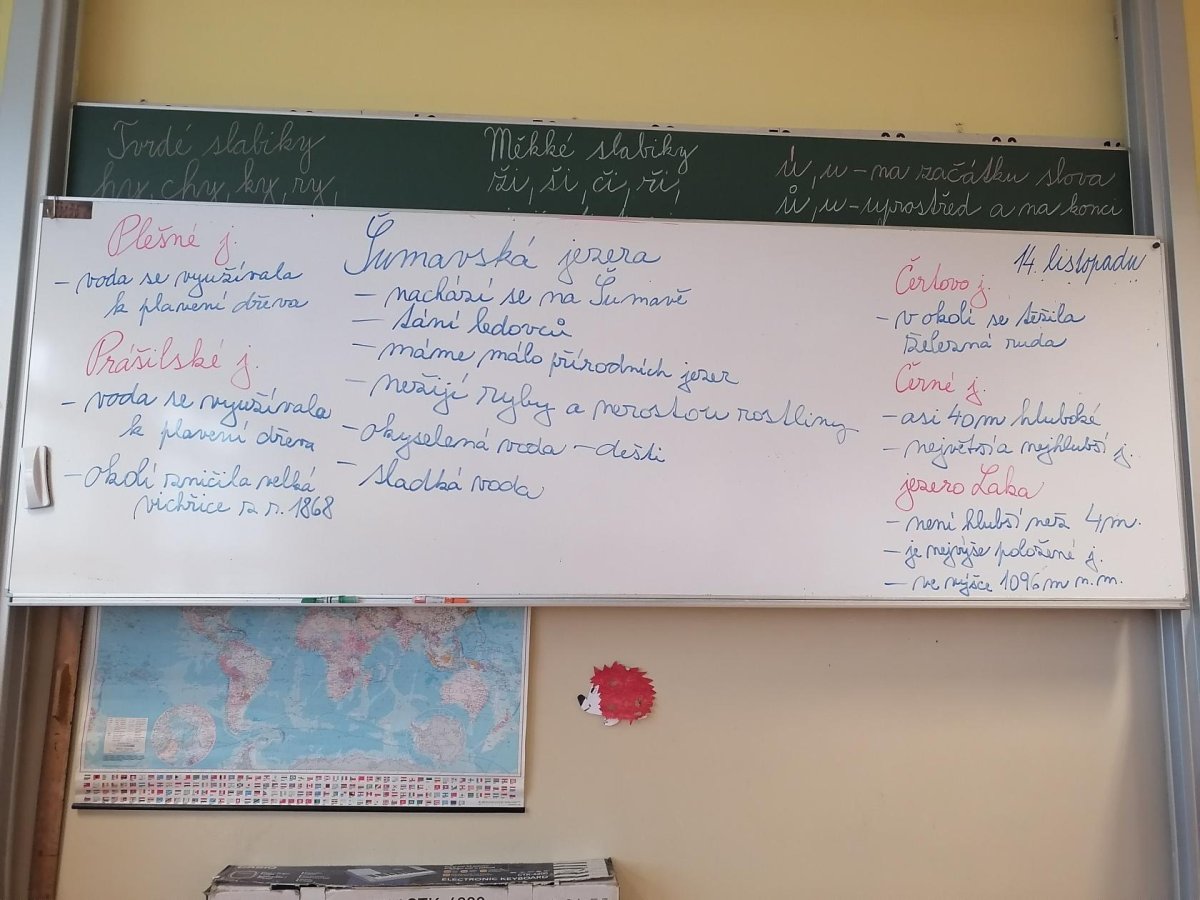 Tvrdé slabiky
hy, chy, ky, ry,
Měkké slabiky
ži, ši, či, ři,
ú, u - na začátku slova
ů, u - uprostřed a na konci
Plešné j.
- voda se využívala
k plavení dřeva
Prášilské j.
- voda se využívala
k plavení dřeva
- okolí zničila velká
vichřice z r. 1868
Šumavská jezera
- nachází se na Šumavě
- tání ledovců
- máme málo přírodních jezer
- nežijí ryby a nerostou rostliny
- okyselená voda - dešti
- sladká voda
14. listopadu
Čertovo j.
- v okolí se těžila
železná ruda
Černé j.
- asi 40 m hluboké
- největší a nejhlubší j.
jezero Laka
- není hlubší než 4 m.
- je nejvýše položené j.
- ve výšce 1096 m n. m.
ELECTRONIC KEYBOARD